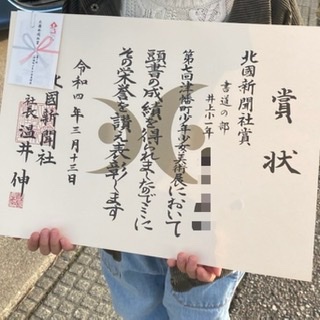 賞状
北國新聞社賞
書道の部
井上小一年
第七回津幡町少年少女美術展において
頭書の成績を得られましたのでここに
その栄誉を讃え表彰します
令和四年三月十三日
北國新聞社
社長 温井 伸